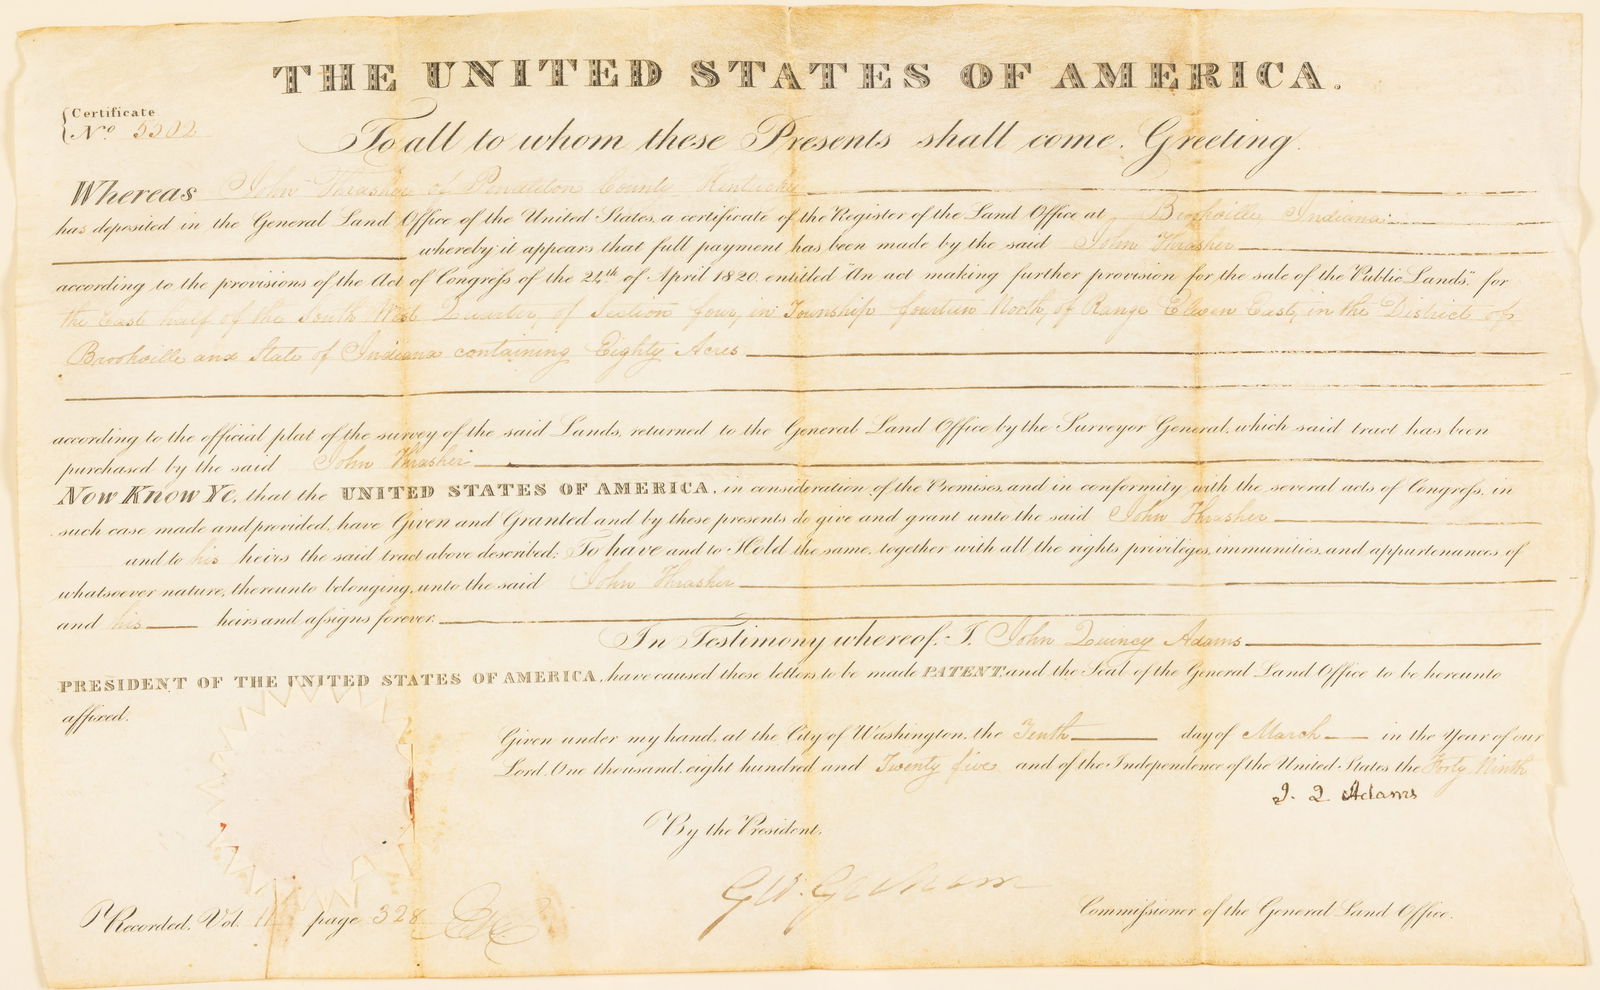 THE UNITED STATES OF AMERICA.
Certificate
No. 5202
To all to whom these Presents shall come, Greeting.
Whereas John Thrasher of Pendleton County Kentucky
has deposited in the General Land Office of the United States, a certificate of the Register of the Land Office at Brookville Indiana
whereby it appears that full payment has been made by the said John Thrasher
according to the provisions of the Act of Congress of the 24th of April 1820, entitled "An act making further provision for the sale of the Public Lands", for
the East half of the South West Quarter, of Section four, in Township fourteen North, of Range Eleven East, in the District of
Brookville and State of Indiana containing Eighty Acres
according to the official plat of the survey of the said Lands, returned to the General Land Office by the Surveyor General, which said tract has been
purchased by the said John Thrasher
Now Know Ye, that the UNITED STATES OF AMERICA, in consideration of the Premises, and in conformity with the several acts of Congress, in
such case made and provided, have Given and Granted and by these presents do give and grant unto the said John Thrasher
and to his heirs the said tract above described; To have and to Hold the same, together with all the rights privileges, immunities, and appurtenances of
whatsoever nature, thereunto belonging, unto the said John Thrasher
and his heirs and assigns forever.
In Testimony whereof, I, John Quincy Adams
PRESIDENT OF THE UNITED STATES OF AMERICA, have caused these letters to be made PATENT, and the Seal of the General Land Office to be hereunto
affixed.
Given under my hand, at the City of Washington, the Tenth day of March in the Year of our
Lord One thousand eight hundred and Twenty five and of the Independence of the United States the Forty Ninth
J. Q. Adams
By the President,
G.W. Graham
Commissioner of the General Land Office.
Recorded, Vol. page 328